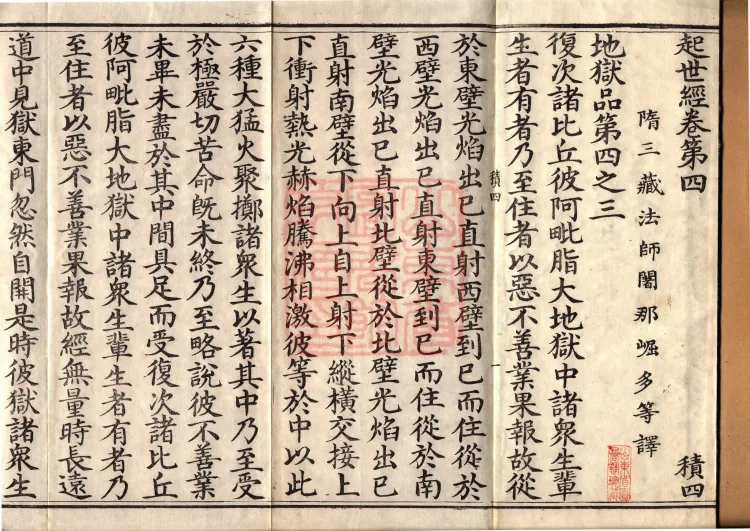 起世經卷第四 積四
隋三藏法師闍那崛多等譯
地獄品第四之三
復次諸比丘彼阿毗脂大地獄中諸衆生輩
生者有者乃至住者以惡不善業果報故從
積四 一
於東壁光焰出巳直射西壁到巳而住從於
西壁光焰出巳直射東壁到巳而住從於南
壁光焰出巳直射北壁從於北壁光焰出巳
直射南壁從下向上自上射下縱橫交接上
下衝射熱光赫焰騰沸相激彼等於中以此
六種大猛火聚擲諸衆生以著其中乃至受
於極嚴切苦命旣未終乃至略說彼不善業
未畢未盡於其中間具足而受復次諸比丘
彼阿毗脂大地獄中諸衆生輩生者有者乃
至住者以惡不善業果報故經無量時長遠
道中見獄東門忽然自開是時彼獄諸衆生